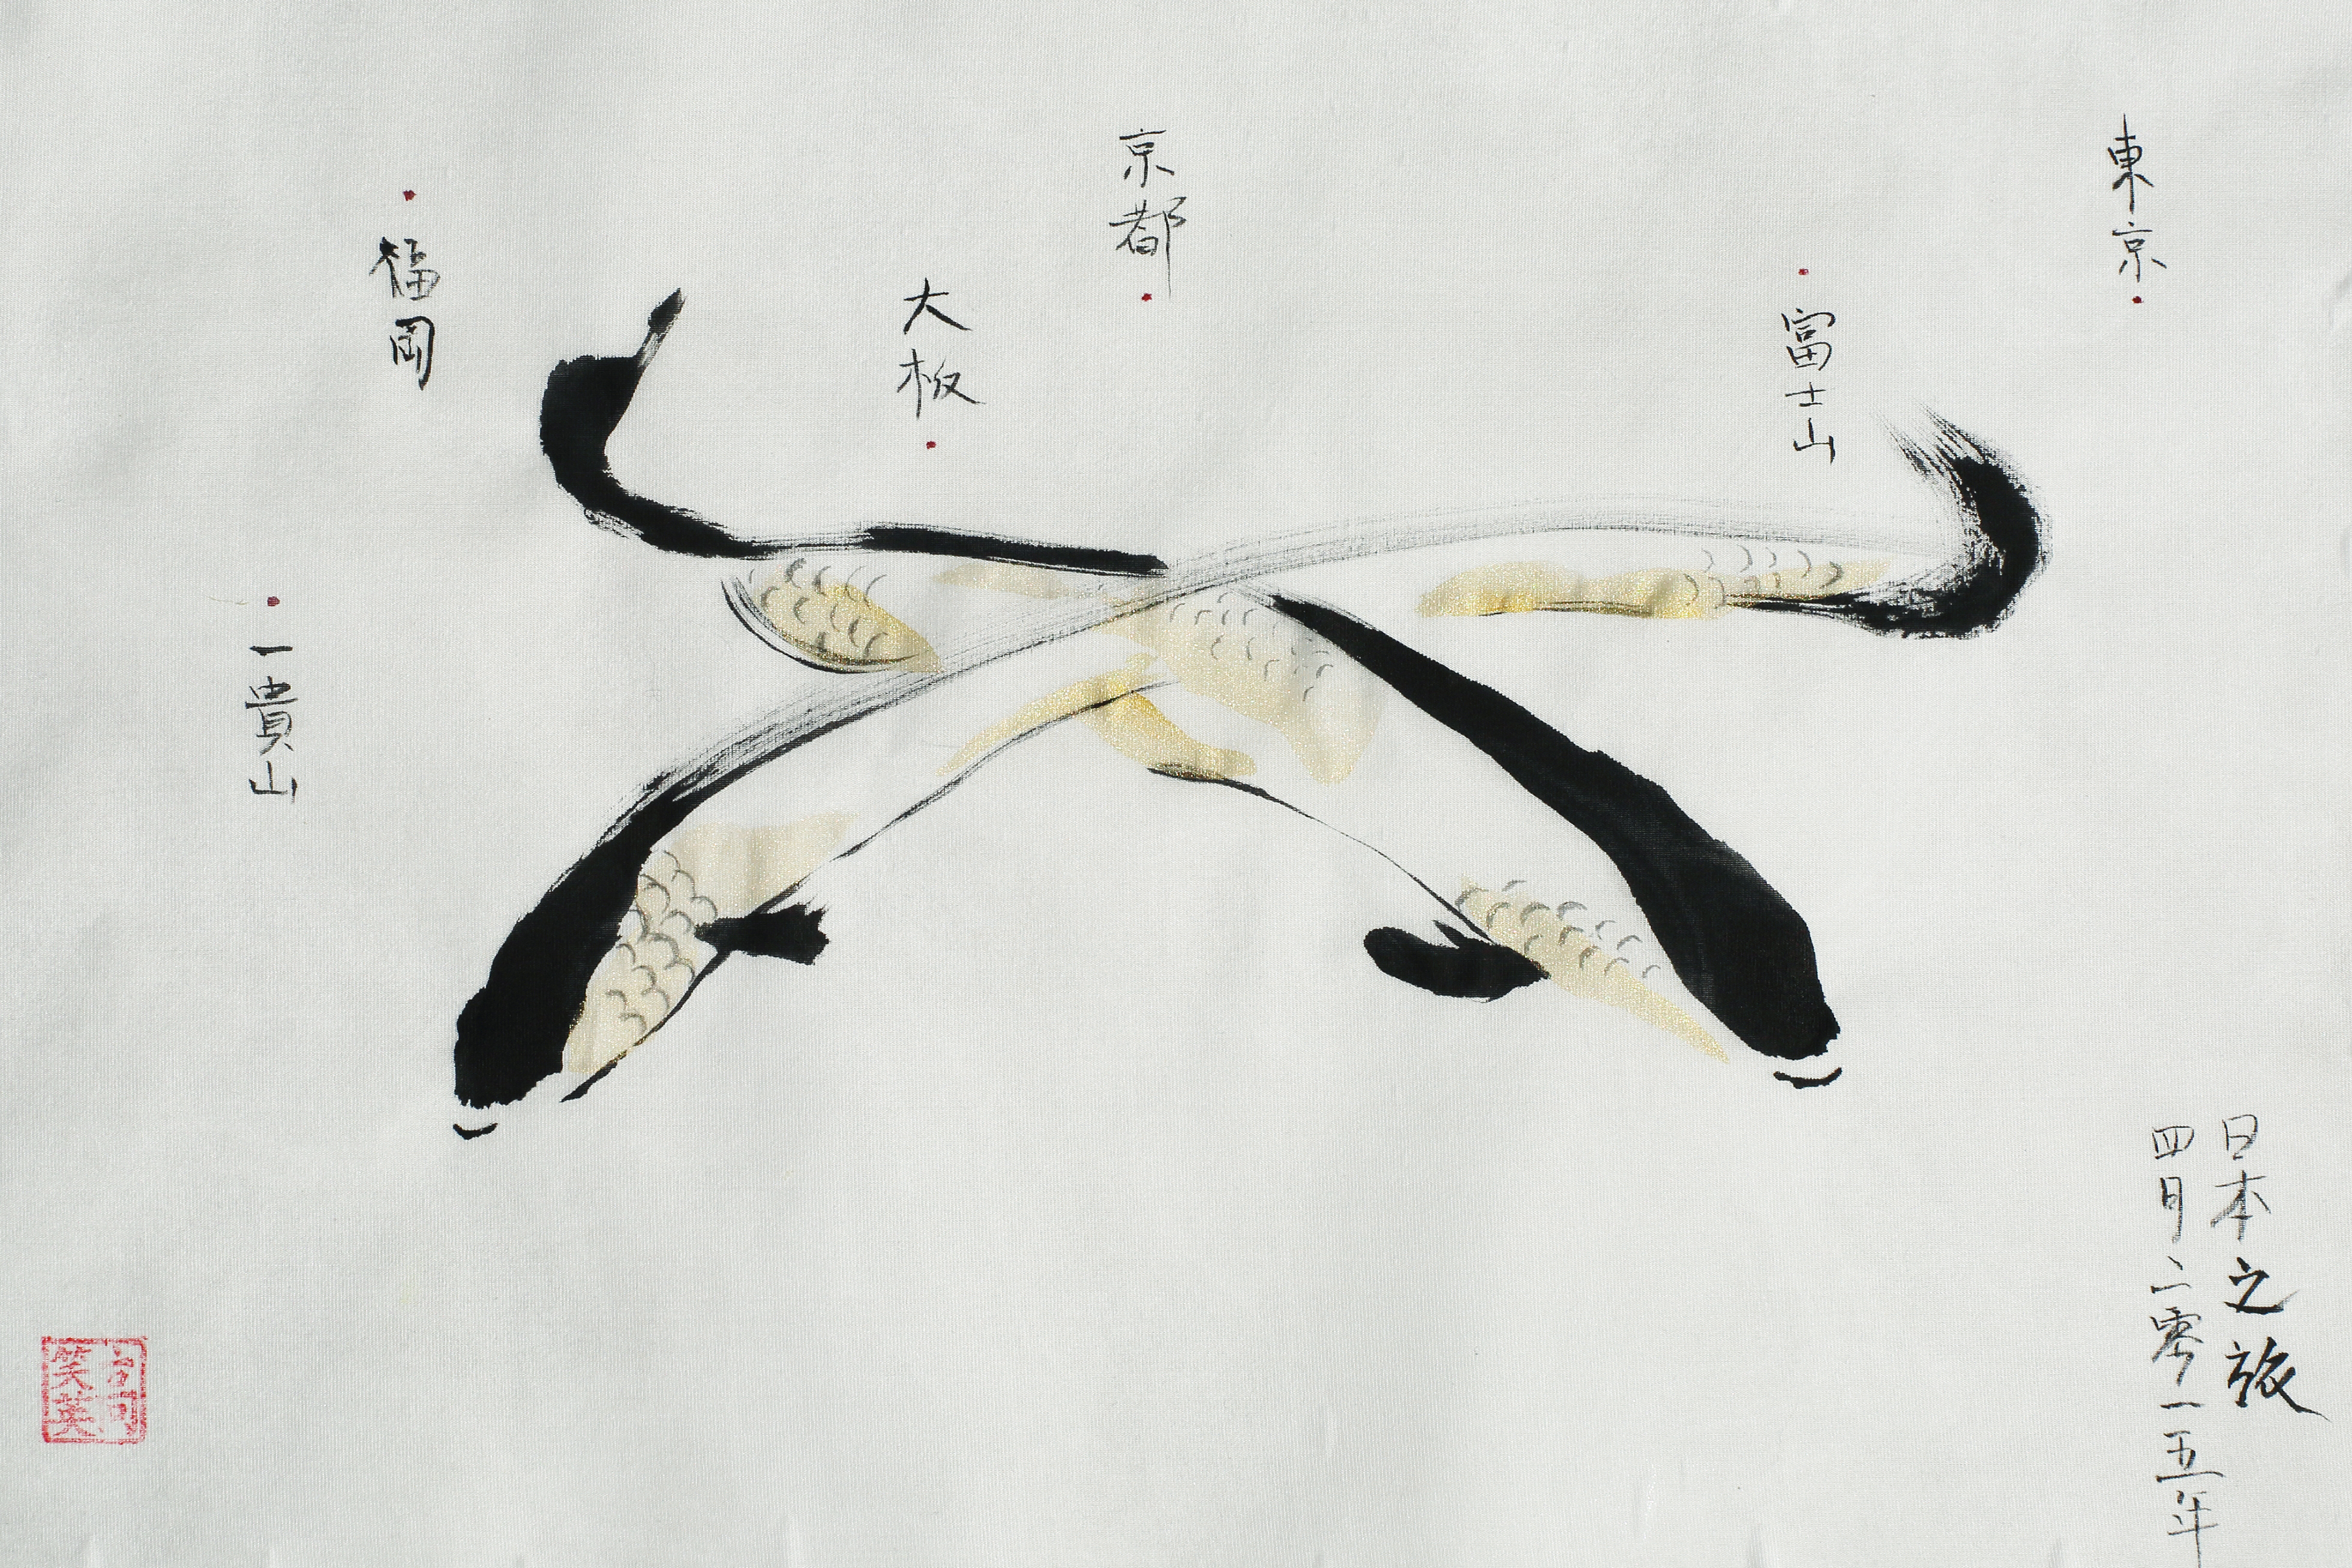 東京
富士山
京都
大板
福岡
一貴山
日本之旅
四月二零一五年
笑英